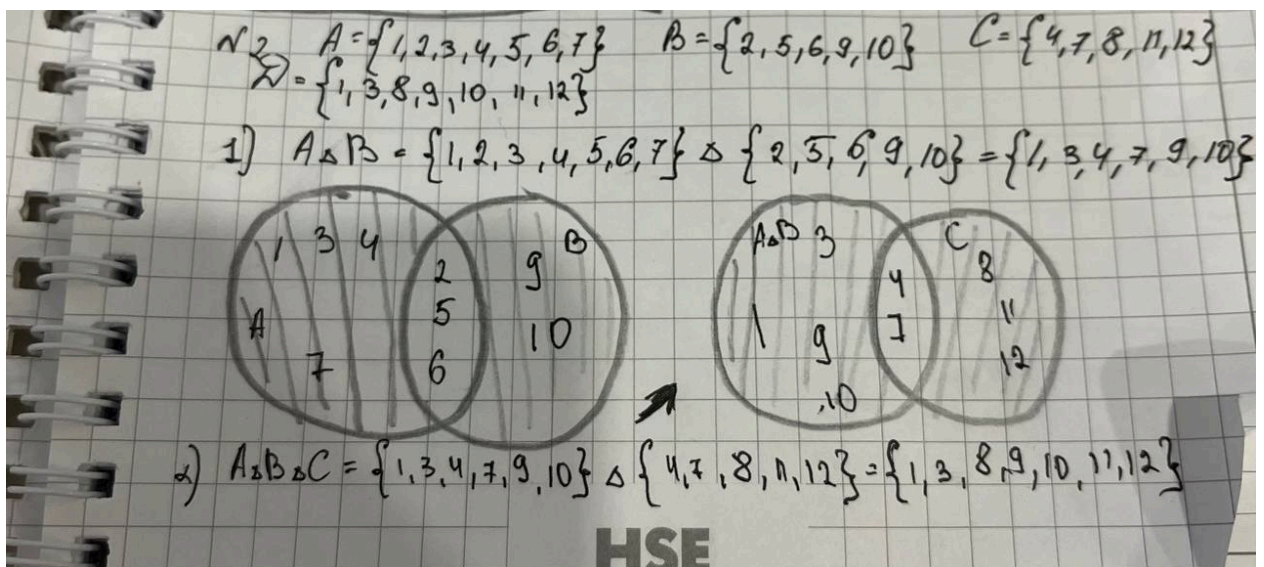 N2 A={1,2,3,4,5,6,7} B={2,5,6,9,10} C={4,7,8,11,12}
D={1,3,8,9,10,11,12}
1) A△B={1,2,3,4,5,6,7}△{2,5,6,9,10}={1,3,4,7,9,10}
1 3 4
2
5
6
9
B
10
A
7
A△B 3
4
7
C
8
11
12
1
9
10
2) A△B△C={1,3,4,7,9,10}△{4,7,8,11,12}={1,3,8,9,10,11,12}
HSE